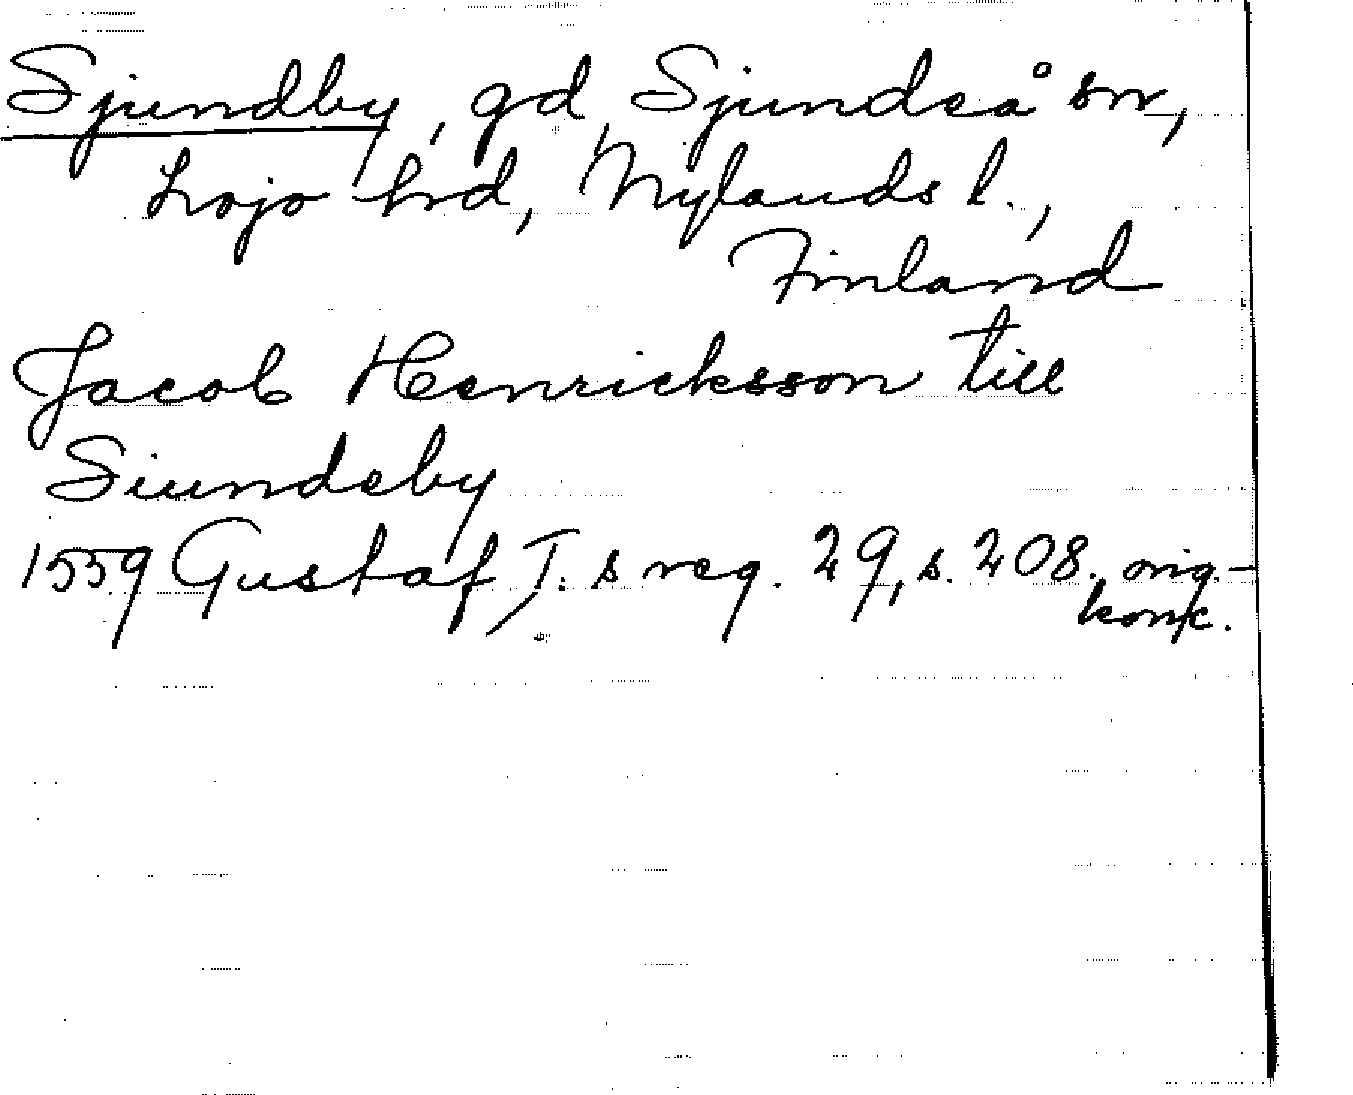 Sjundby, gd, Sjundeå sn,
Lojo hrd, Nylands l.,
Finland
Jacob Henricksson till
Siundeby
1559 Gustaf I:s reg. 29, s. 208, orig.-
konc.